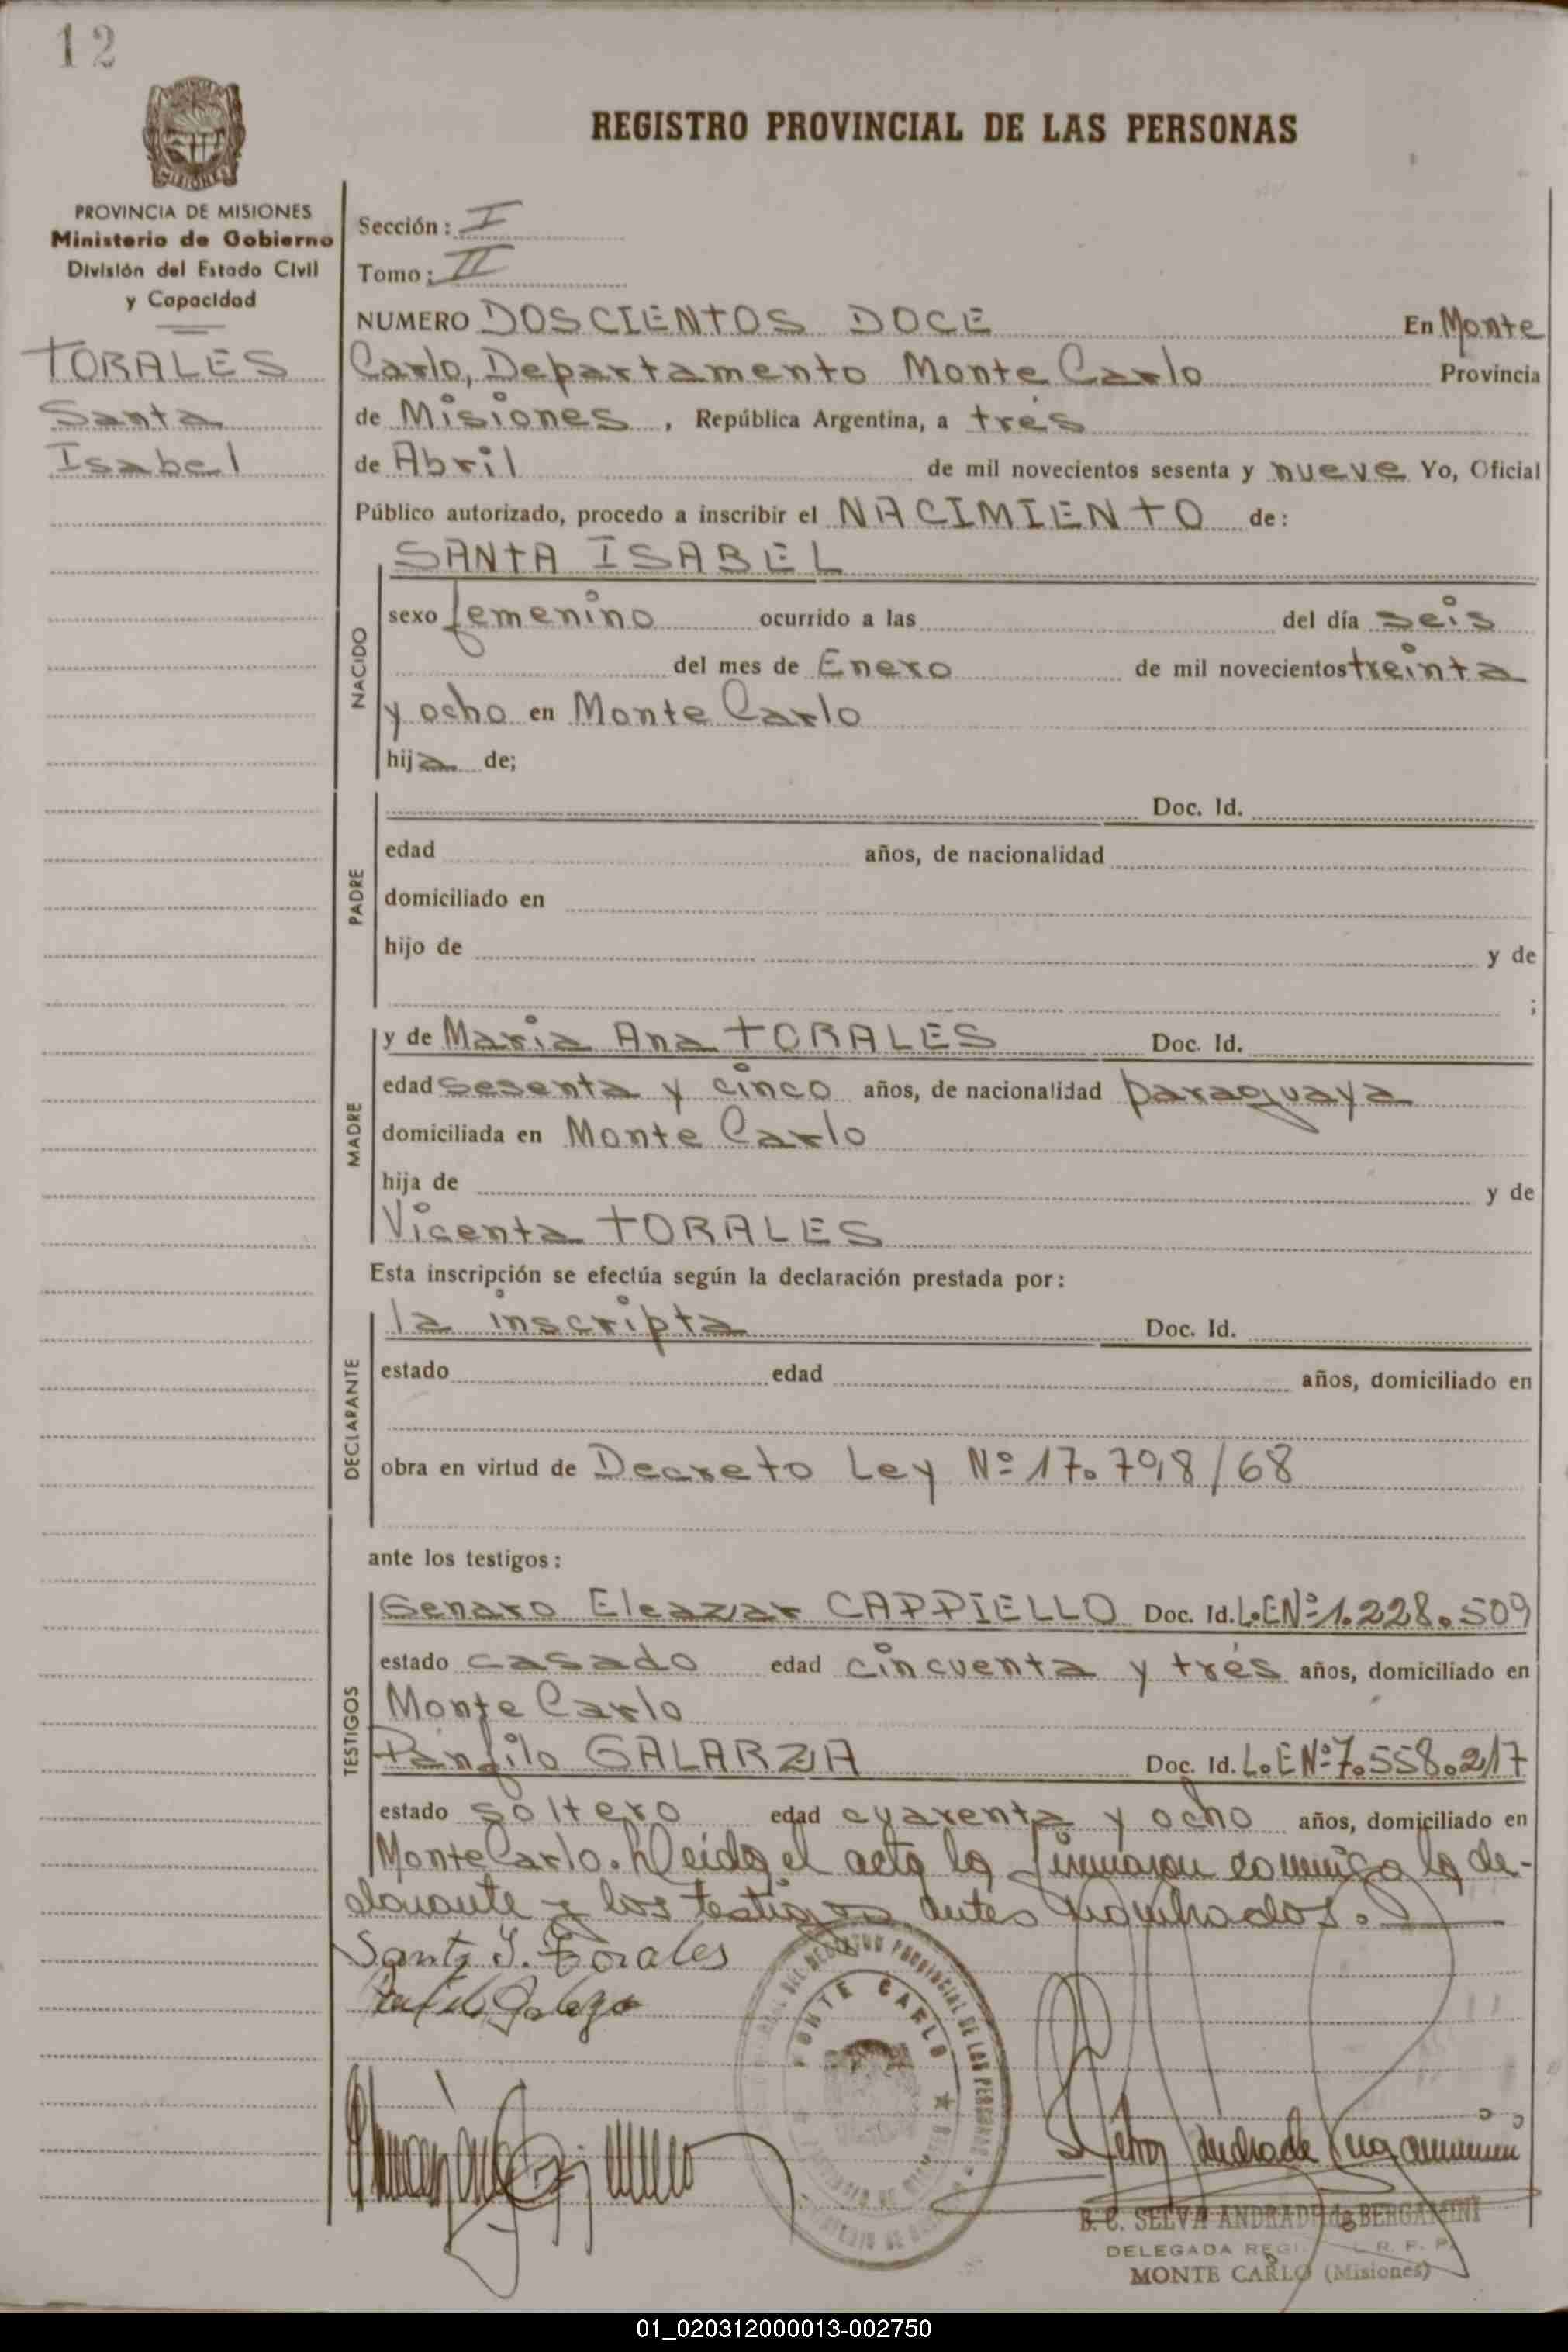 12
MISIONES
REGISTRO PROVINCIAL DE LAS PERSONAS
PROVINCIA DE MISIONES
Ministerio de Gobierno
División del Estado Civil
y Capacidad
TORALES
Santa
Isabel
Sección: I
Tomo: II
NUMERO DOSCIENTOS DOCE En Monte
Carlo, Departamento Monte Carlo Provincia
de Misiones, República Argentina, a tres
de Abril de mil novecientos sesenta y nueve Yo, Oficial
Público autorizado, procedo a inscribir el NACIMIENTO de:
SANTA ISABEL
NACIDO
sexo femenino ocurrido a las del día seis
del mes de Enero de mil novecientos treinta
y ocho en Monte Carlo
hija de;
PADRE
Doc. Id.
edad años, de nacionalidad
domiciliado en
hijo de y de
;
MADRE
y de Maria Ana TORALES Doc. Id.
edad sesenta y cinco años, de nacionalidad paraguaya
domiciliada en Monte Carlo
hija de y de
Vicenta TORALES
Esta inscripción se efectúa según la declaración prestada por:
DECLARANTE
la inscripta Doc. Id.
estado edad años, domiciliado en
obra en virtud de Decreto Ley Nº 17.798/68
ante los testigos:
TESTIGOS
Genaro Eleazar CAPPIELLO Doc. Id. L.E Nº 1.228.509
estado casado edad cincuenta y tres años, domiciliado en
Monte Carlo
Pánfilo GALARZA Doc. Id. L.E Nº 7.558.217
estado soltero edad cuarenta y ocho años, domiciliado en
Monte Carlo. Leida el acta la firmaron conmigo la de-
clarante y los testigos antes nombrados.
Santa I. Torales
MONTE CARLO
PROVINCIAL DE LAS PERSONAS
B. C. SELVA ANDRADE de BERGAMINI
DELEGADA R. P. P.
MONTE CARLO (Misiones)
01_020312000013-002750